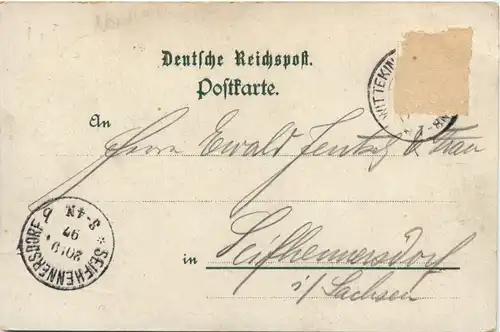 Deutsche Reichspost.
Postkarte.
WITTEKIN
7-8N
An
Herrn Ewald Jentsch & Frau
in Seifhennersdorf
i/ Sachsen
* SEIFHENNERSDORF b
20.9.
97
3-4N